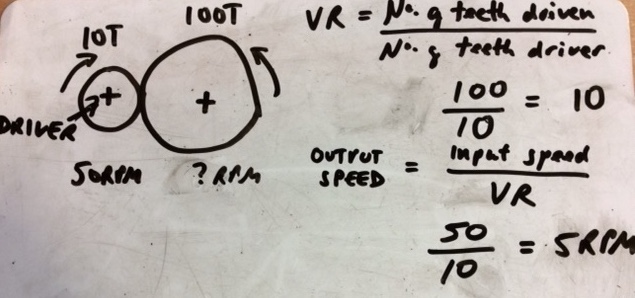 10T
100T
DRIVER
50RPM
? RPM
VR = No. of teeth driven
No. of teeth driver
100
10
= 10
OUTPUT SPEED = Input speed
VR
50
10
= 5RPM